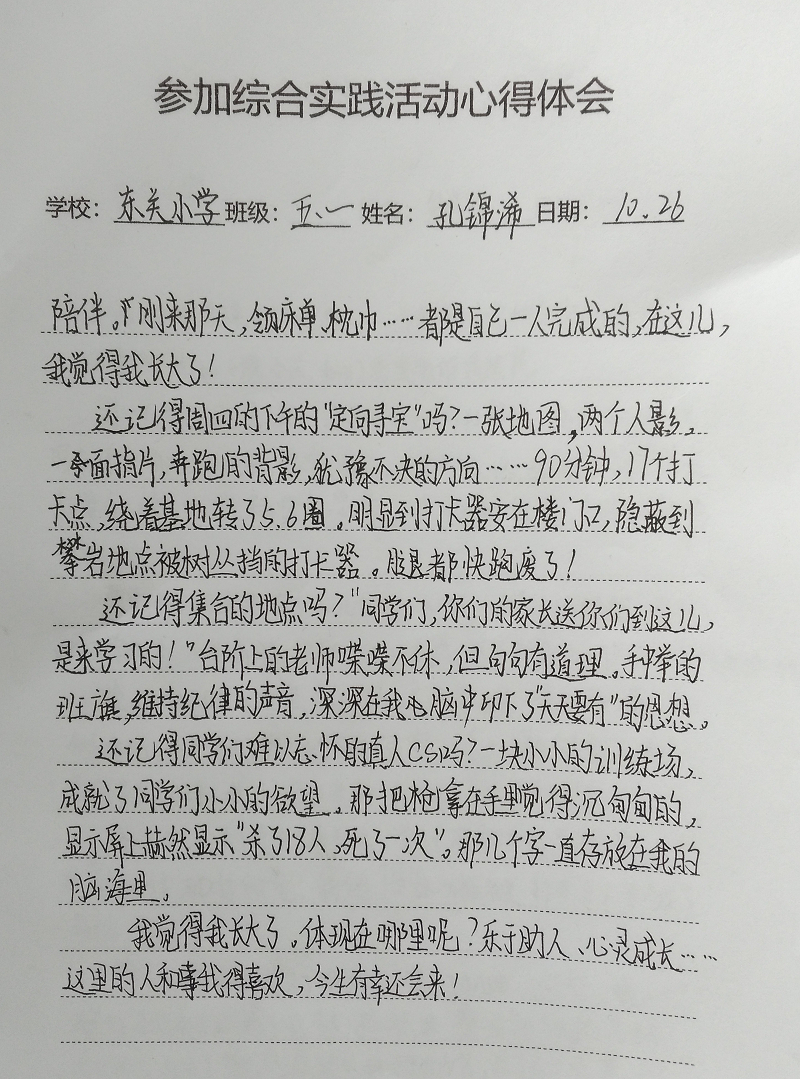 参加综合实践活动心得体会
学校：东关小学 班级：五、一 姓名：孔锦浠 日期：10.26
陪伴。刚来那天，领床单、枕巾……都是自己一人完成的，在这儿，
我觉得我长大了！
还记得周四的下午的“定向寻宝”吗？一张地图，两个人影，
一面指片，奔跑的背影，犹豫不决的方向……90分钟，17个打
卡点，绕着基地转了5.6圈。明显到打卡器安在楼门口，隐蔽到
攀岩地点被树丛挡的打卡器。腿都快跑废了！
还记得集合的地点吗？“同学们，你们的家长送你们到这儿，
是来学习的！”台阶上的老师喋喋不休，但句句有道理。手中举的
班旗，维持纪律的声音，深深在我心脑中印下了“天天要有”的思想。
还记得同学们难以忘怀的真人CS吗？一块小小的训练场，
成就了同学们小小的欲望。那把枪拿在手里觉得沉甸甸的，
显示屏上赫然显示“杀了18人，死了一次”。那几个字一直存放在我的
脑海里。
我觉得我长大了。体现在哪里呢？乐于助人、心灵成长……
这里的人和事我得喜欢，今生有幸还会来！